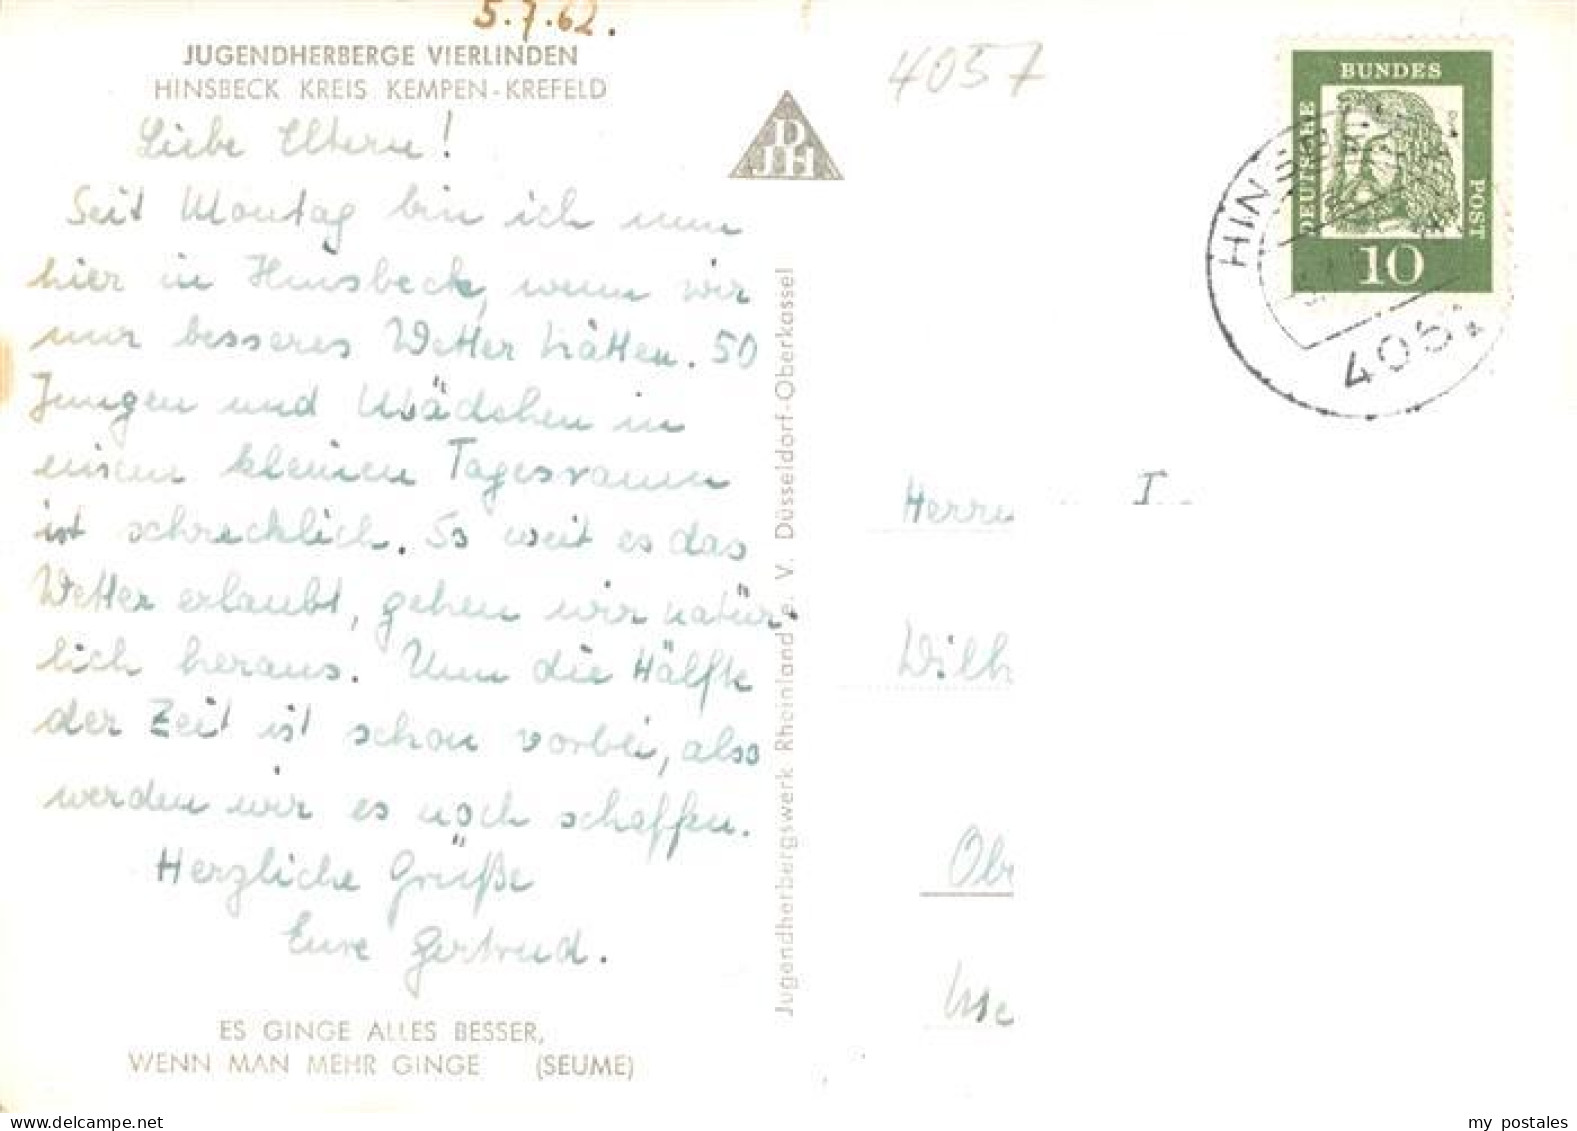 5.7.62.
JUGENDHERBERGE VIERLINDEN
HINSBECK KREIS KEMPEN-KREFELD
Liebe Eltern!
Seit Montag bin ich nun
hier in Hinsbeck, wenn wir
nur besseres Wetter hätten. 50
Jungen und Mädchen in
einem kleinen Tagesraum
ist schrecklich. So weit es das
Wetter erlaubt, gehen wir natür-
lich heraus. Um die Hälfte
der Zeit ist schon vorbei, also
werden wir es noch schaffen.
Herzliche Grüße
Eure Gertrud.
ES GINGE ALLES BESSER,
WENN MAN MEHR GINGE (SEUME)
Jugendherbergswerk Rheinland e. V. Düsseldorf-Oberkassel
DJH
4057
DEUTSCHE
BUNDES
POST
10
HINSBECK
Herrn
Wilh
my postales